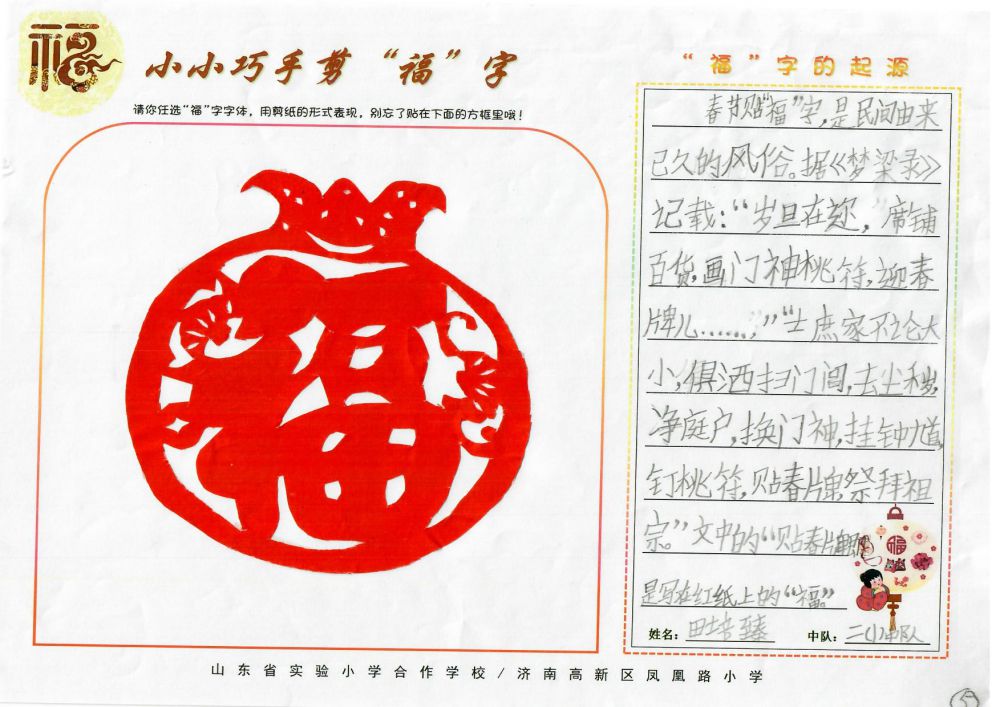 福
小小巧手剪“福”字
请你任选“福”字字体，用剪纸的形式表现，别忘了贴在下面的方框里哦！
福
“福”字的起源
春节贴“福”字，是民间由来
已久的风俗。据《梦梁录》
记载：“岁旦在迩，席铺
百货，画门神桃符，迎春
牌儿……，”“士庶家不论大
小，俱洒扫门闾，去尘秽，
净庭户，换门神，挂钟馗，
钉桃符，贴春牌，祭拜祖
宗。”文中的“贴春牌”即
是写在红纸上的“福”。
福
姓名：田培臻
中队：二（1）中队
山东省实验小学合作学校/济南高新区凤凰路小学